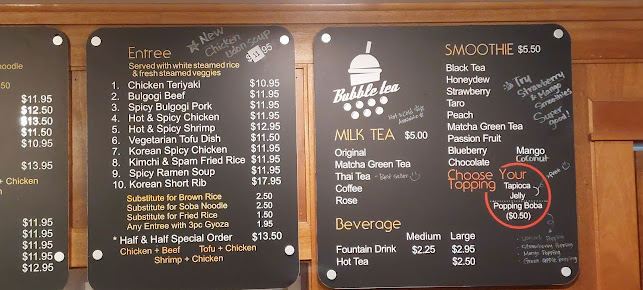 noodle
50
$11.95
$12.50
$13.50
$11.50
$10.95
$13.95
+ Chicken
n
$11.95
$11.95
$11.95
$12.95
Entree
New
Chicken
Udon soup
.95
Served with white steamed rice
& fresh steamed veggies
1. Chicken Teriyaki $10.95
2. Bulgogi Beef $11.95
3. Spicy Bulgogi Pork $11.95
4. Hot & Spicy Chicken $11.95
5. Hot & Spicy Shrimp $12.95
6. Vegetarian Tofu Dish $11.50
7. Korean Spicy Chicken $11.95
8. Kimchi & Spam Fried Rice $11.95
9. Spicy Ramen Soup $11.95
10. Korean Short Rib $17.95
Substitute for Brown Rice 2.50
Substitute for Soba Noodle 2.50
Substitute for Fried Rice 1.50
Any Entree with 3pc Gyoza 1.95
* Half & Half Special Order $13.50
Chicken + Beef Tofu + Chicken
Shrimp + Chicken
Bubble tea
MILK TEA $5.00
Original
Matcha Green Tea
Thai Tea - Best Seller
Coffee
Rose
Beverage
Medium Large
Fountain Drink $2.25 $2.95
Hot Tea $2.50
SMOOTHIE $5.50
Black Tea
Honeydew
Strawberry
Taro
Peach
Matcha Green Tea
Passion Fruit
Blueberry Mango
Chocolate Coconut
Try
Strawberry
& Mango
Smoothies
Super
good!
Choose Your
Topping
Tapioca
Jelly
Popping Boba
($0.50)
- Strawberry Popping
- Mango Popping
- Green apple Popping